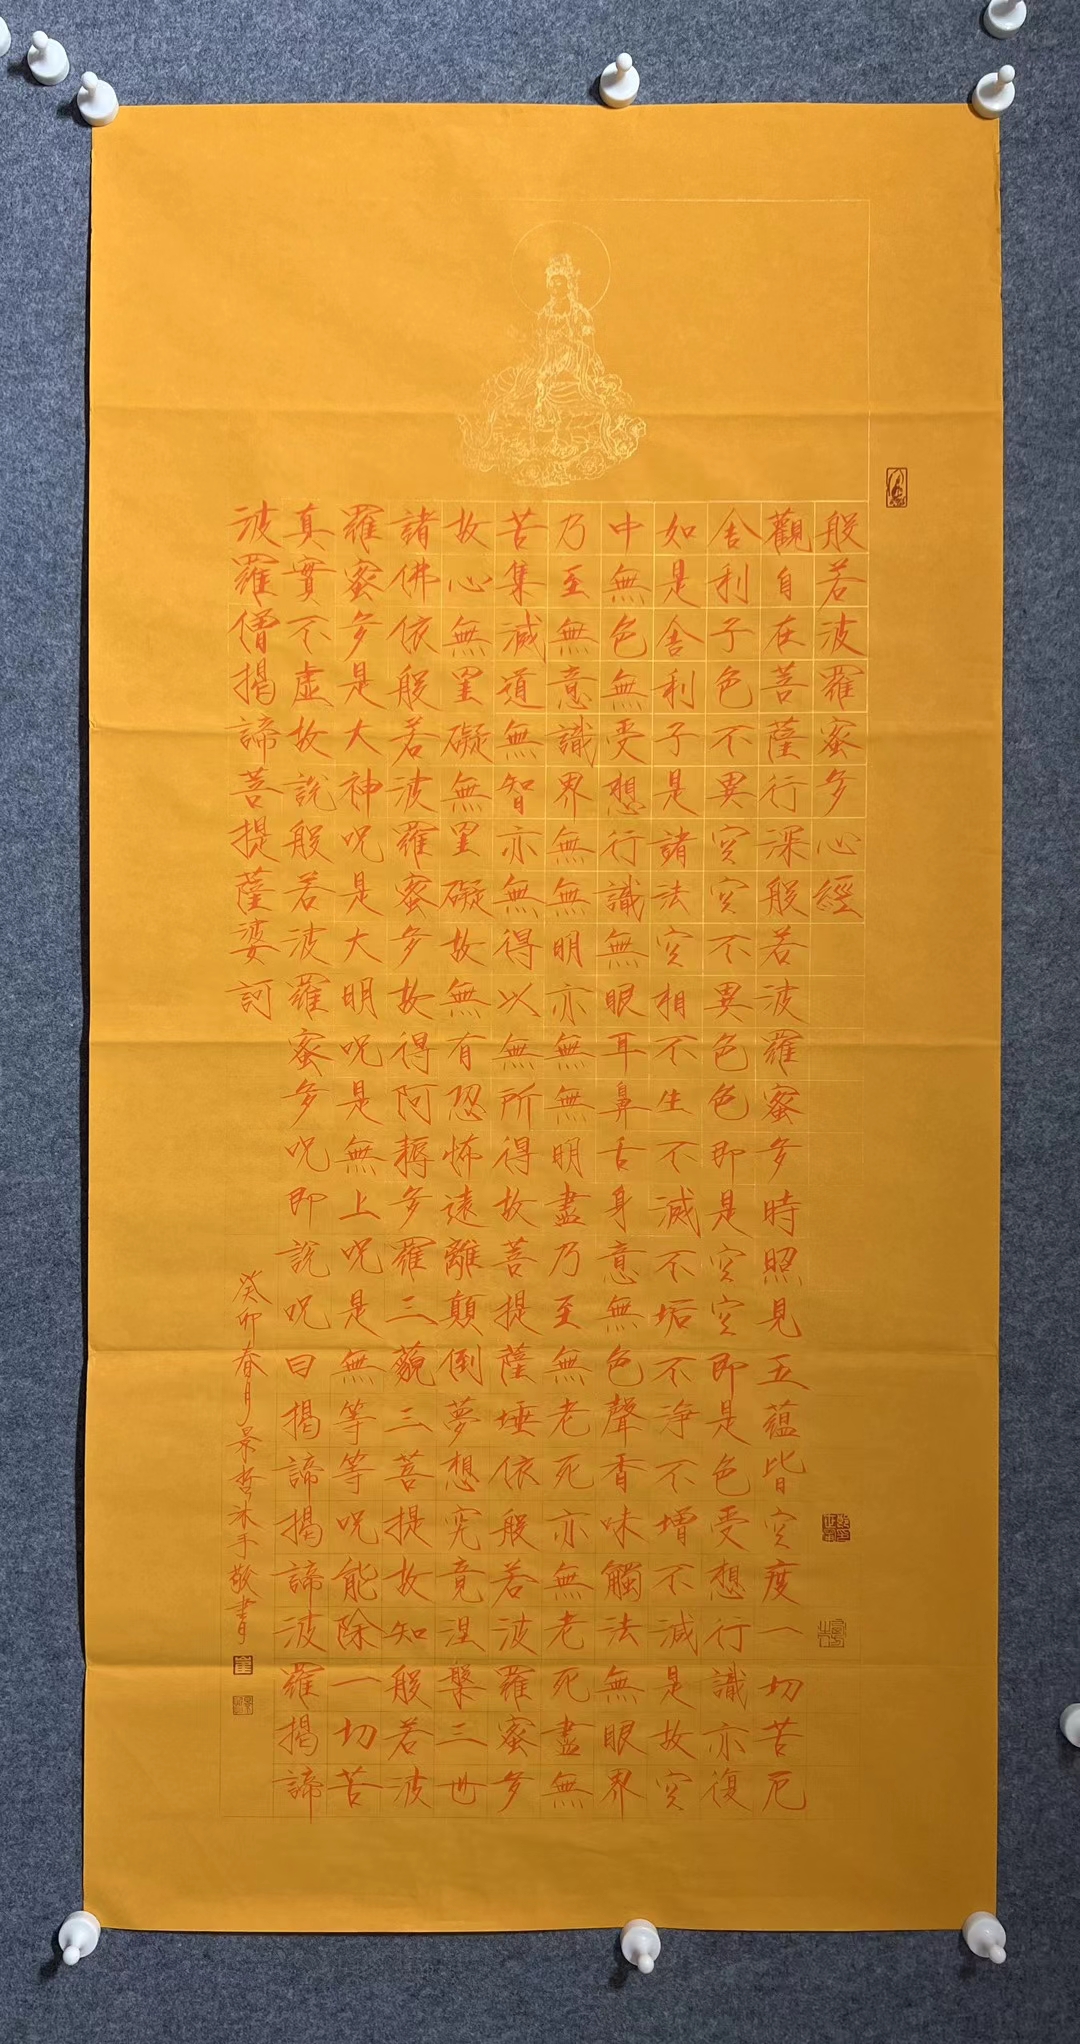 般若波羅蜜多心經
觀自在菩薩行深般若波羅蜜多時照見五蘊皆空度一切苦厄
舍利子色不異空空不異色色即是空空即是色受想行識亦復
如是舍利子是諸法空相不生不滅不垢不淨不增不減是故空
中無色無受想行識無眼耳鼻舌身意無色聲香味觸法無眼界
乃至無意識界無無明亦無無明盡乃至無老死亦無老死盡無
苦集滅道無智亦無得以無所得故菩提薩埵依般若波羅蜜多
故心無罣礙無罣礙故無有恐怖遠離顛倒夢想究竟涅槃三世
諸佛依般若波羅蜜多故得阿耨多羅三藐三菩提故知般若波
羅蜜多是大神呪是大明呪是無上呪是無等等呪能除一切苦
真實不虛故說般若波羅蜜多呪即說呪曰揭諦揭諦波羅揭諦
波羅僧揭諦菩提薩婆訶
癸卯春月景哲沐手敬書